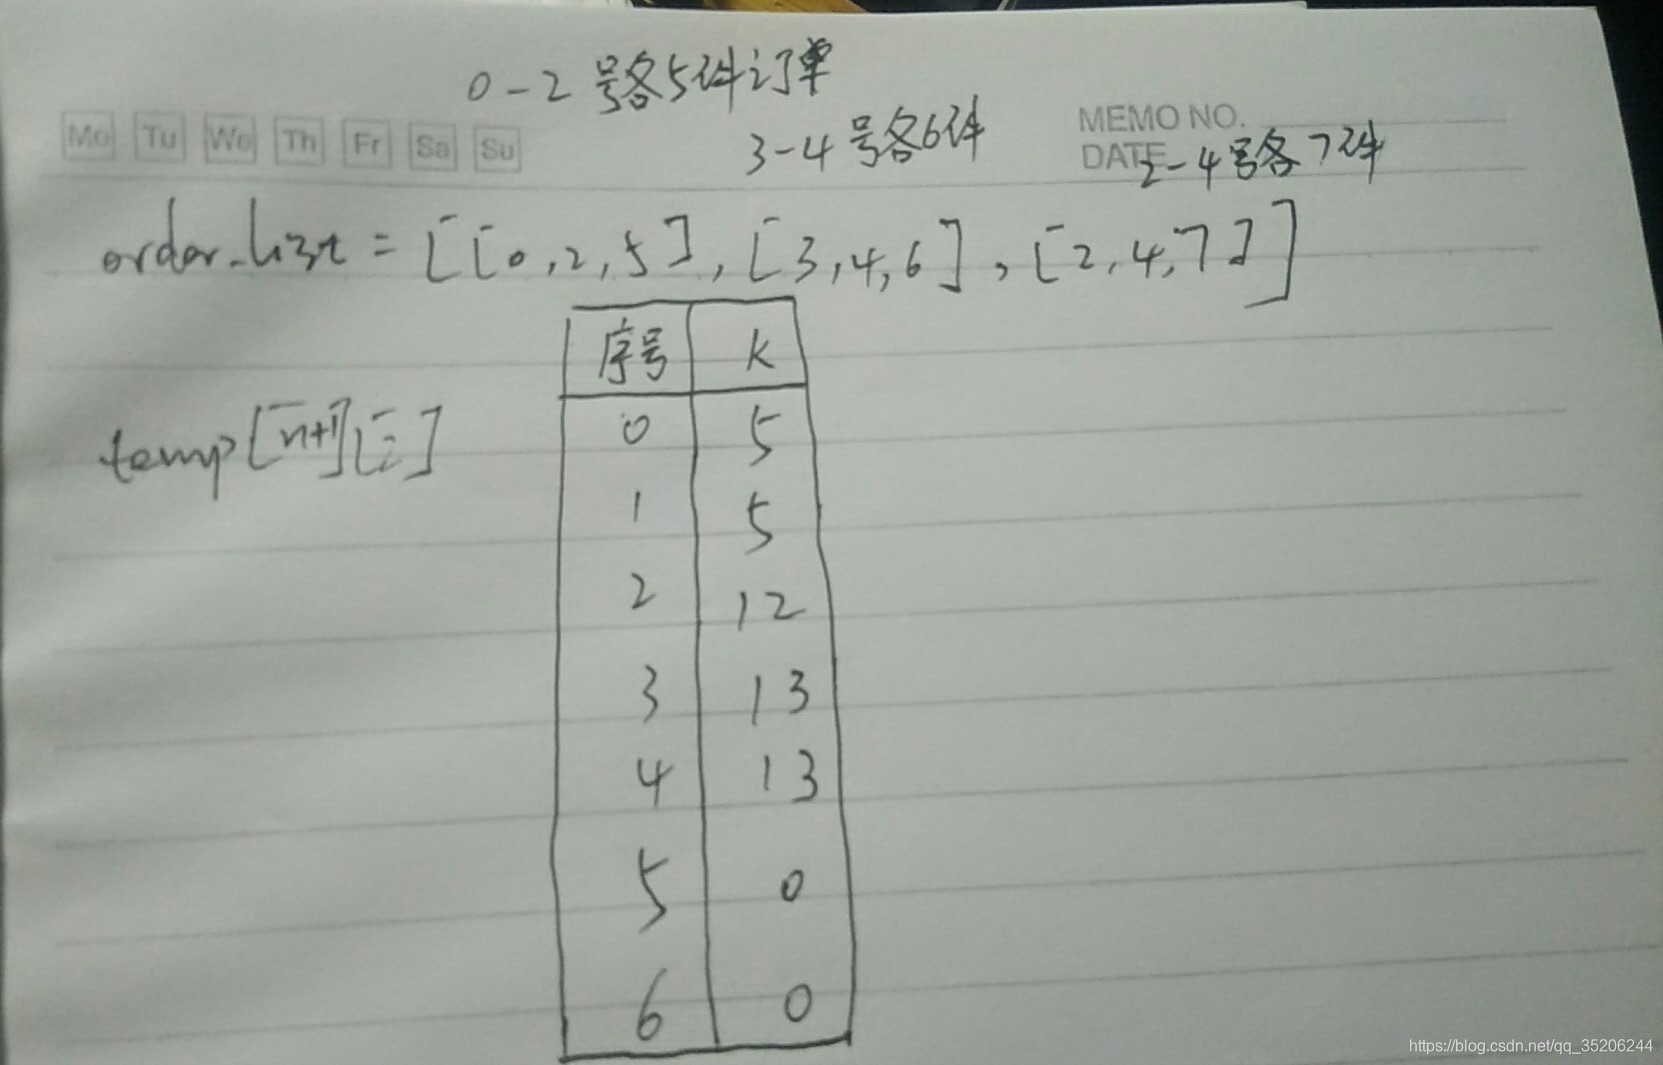 0-2 号各5件订单
Mo Tu We Th Fr Sa Su
3-4 号各6件
MEMO NO.
DATE
2-4号各7件
order_list = [[0,2,5],[3,4,6],[2,4,7]]
序号 K
temp[n+1][2]
0 5
1 5
2 12
3 13
4 13
5 0
6 0
https://blog.csdn.net/qq_35206244